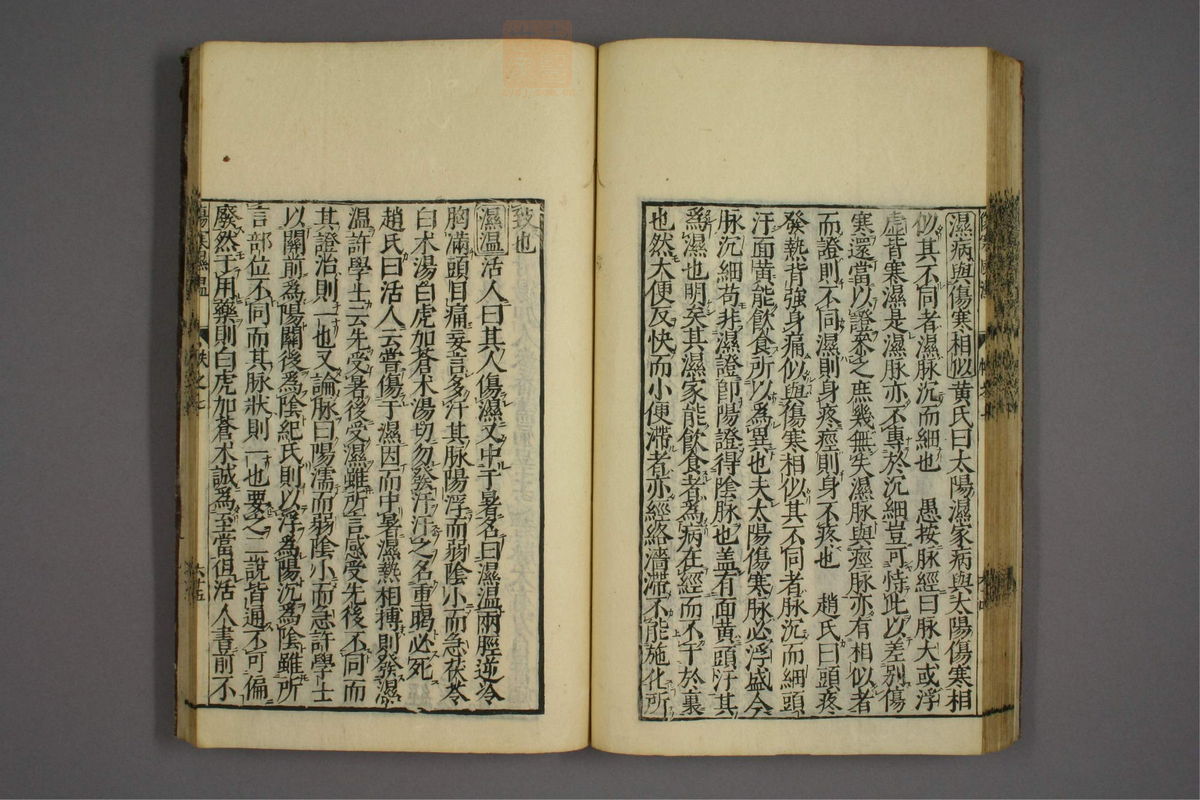 濕病與傷寒相似黄氏曰太陽濕家病與太陽傷寒相
似其不同者濕脉沉而細也　愚按脉經曰脉大或浮
虚皆寒濕是濕脉亦不專於沉細豈可恃此以差别傷
寒還當以證來之庶幾無失濕脉與痙脉亦有相似者
而證則不同濕則身疼痙則身不疼也　趙氏曰頭疼
發熱背強身痛似與傷寒相似其不同者脉沉而細頭
汗面黄能飲食所以為異也夫太陽傷寒脉必浮盛今
脉沉細苟非濕證卽陽證得陰脉也盖有面黄頭汗其
為濕也明矣其濕家能飲食者為病在經而不干於裏
也然大便反快而小便滯者亦經絡濇滯不能施化所
致也
濕温活人曰其人傷濕又中于暑名曰濕温兩脛逆冷
胸滿頭目痛妄言多汗其脉陽浮而弱陰小而急茯苓
白术湯白虎加蒼术湯切勿發汗汗之名重暍必死
趙氏曰活人云嘗傷于濕因而中暑濕熱相搏則發濕
温許學士云先受暑後受濕雖所言感受先後不同而
其證治則一也又論脉曰陽濡而弱陰小而急許學士
以關前為陽關後為陰紀氏則以浮為陽沉為陰雖所
言部位不同而其脉狀則一也要之二說皆通不可偏
廢然于用藥則白虎加蒼术誠為至當但活人書前不
傷寒濕温
卷之七
六十五